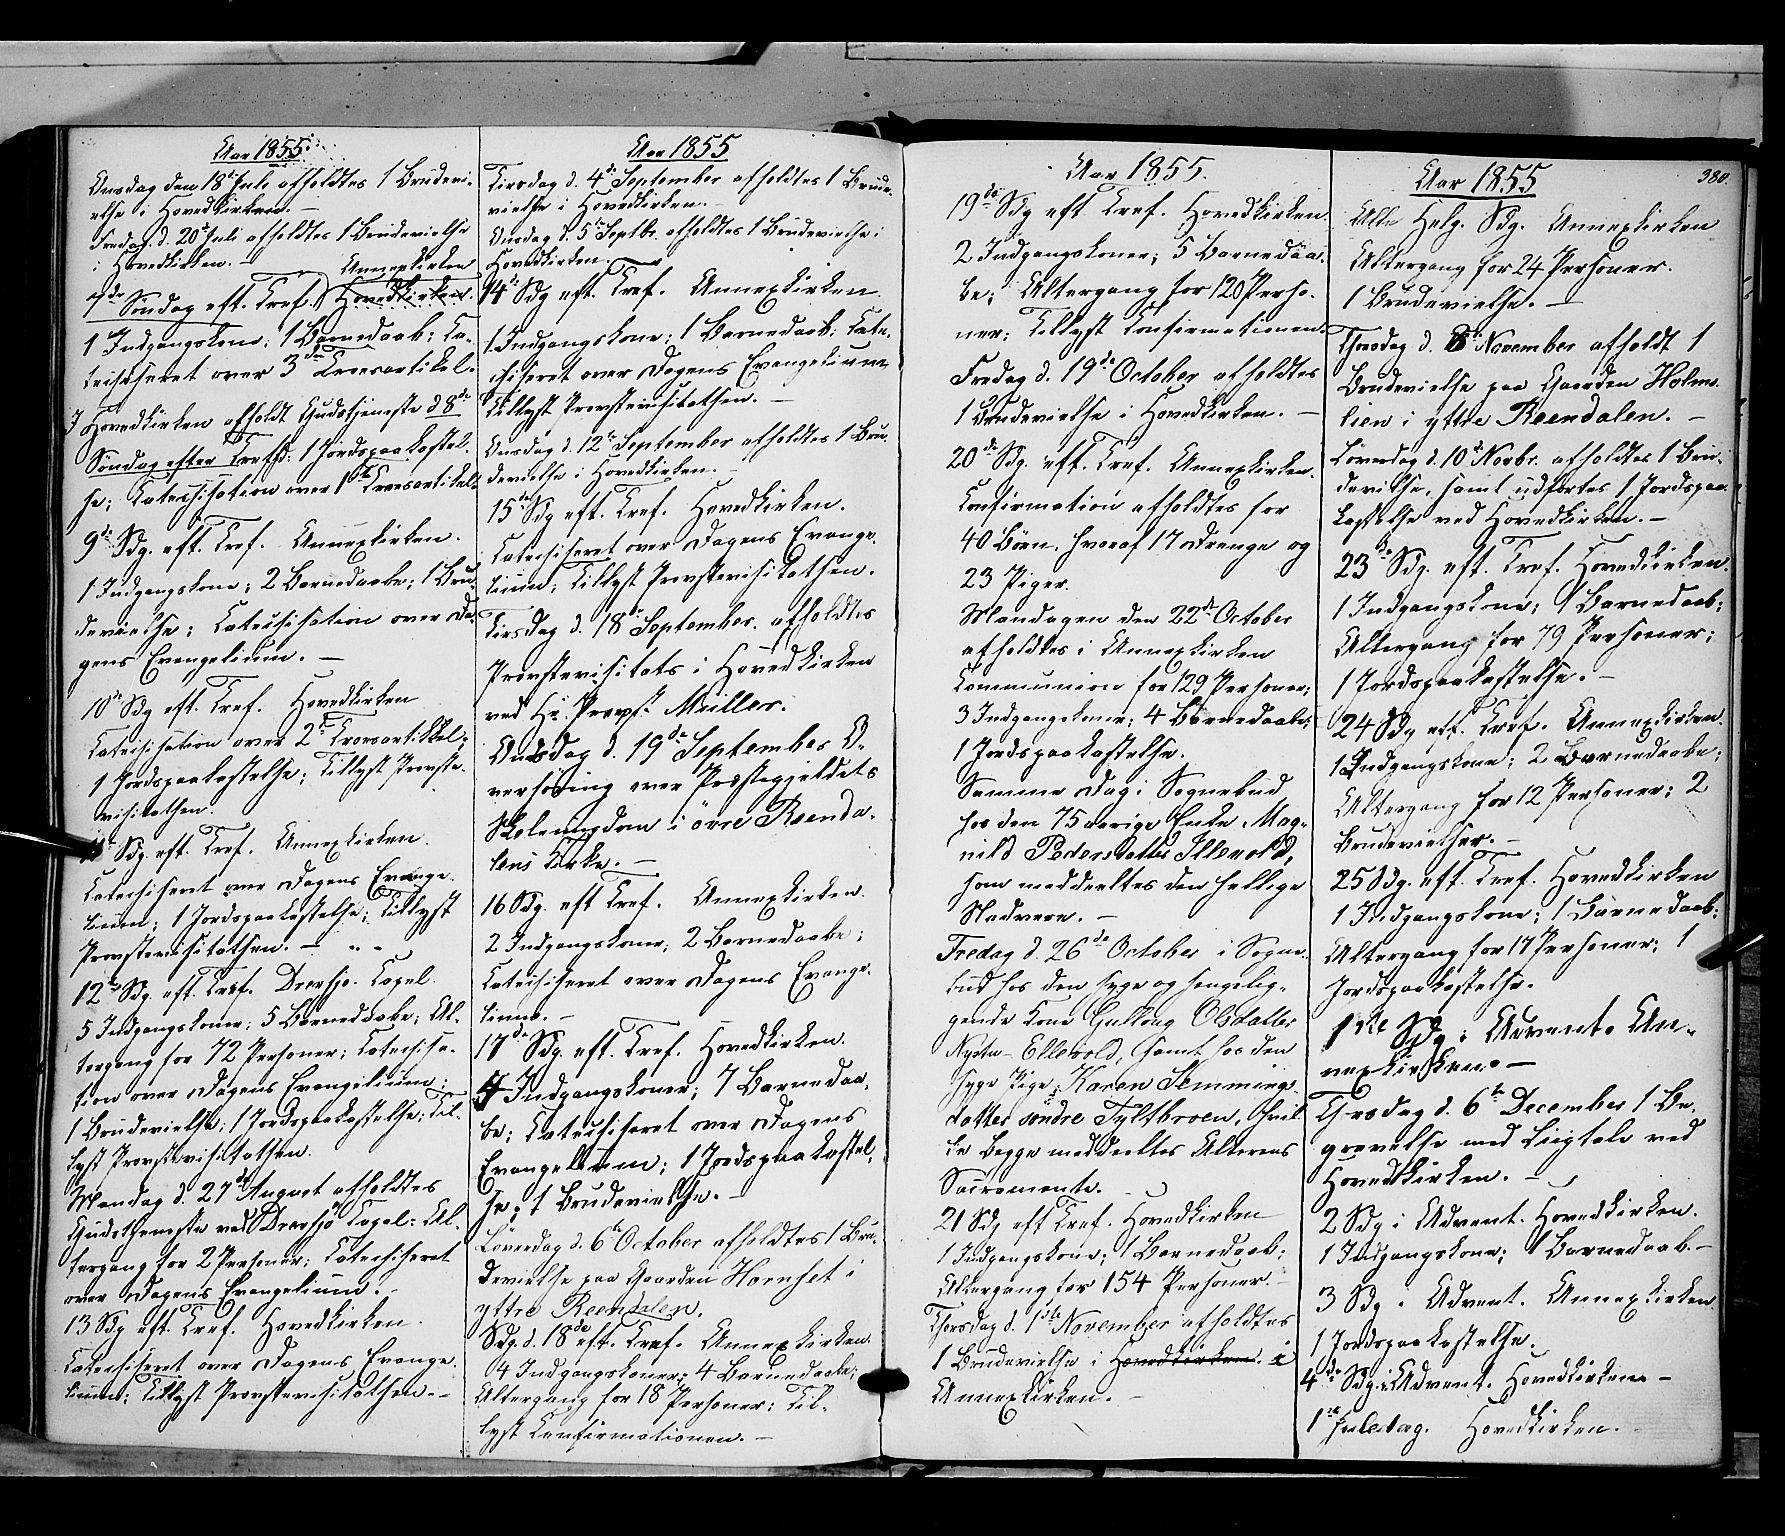 Aar 1855.
Onsdag den 18de Juli afholdtes 1 Brudevi-
else i Hovedkirken. –
Fredag d. 20de Juli afholdtes 1 Brudevielse
i Hovedkirken. –
Annexkirken
7de Søndag eft. Tref. Hovedkirken.
1 Indgangskone; 1 Barnedaab; Ca-
techiseret over 3die Troesartikel.
I Hovedkirken afholdt Gudstjeneste d 8de
Søndag efter Trefh: 1 Jordspaakastel-
se; Catechisation over 1ste Troesartikel.
9de Sdg. eft. Tref. Annexkirken.
1 Indgangskone; 2 Barnedaabe; 1 Bru-
devielse; Catechisation over Da-
gens Evangelium. –
10de Sdg eft. Tref. Hovedkirken
Catechisation over 2den Troesartikkel-
1 Jordspaakastelse; Tillyst Provste-
visitathen.
11te Sdg. eft. Tref. Annexkirken.
Catechiseret over Dagens Evange-
lium; 1 Jordspaakastelse; Tillyst
Provstevisitathsen. –
12te Sdg. eft. Tref. Drevsjø Capel.
5 Indgangskoner; 5 Barnedaabe; Al-
tergang for 72 Personer; Catechisa-
tion over Dagens Evangelium;
1 Brudevielse; 1 Jordspaakastelse; Til-
lyst Provstevisitathsen.
Mandag d. 27de August afholdtes
Gudstheneste ved Drevsjø Capel: Al-
tergang for 2 Personer; Catechiseret
over Dagens Evangelium.
13 Sdg eft. Tref. Hovedkirken.
Catechiseret over Dagens Evange-
lium; Tillyst Provstevisitathsen. –
Aar 1855
Tirsdag d. 4de September afholdtes 1 Brude-
vielse i Hovedkirken. –
Onsdag d. 5te Septbr. afholdtes 1 Brudevielse i
Hovedkirken.
14de Sdg eft. Tref. Annexkirken.
1 Indgangskone; 1 Barnedaab; Cate-
chiseret over Dagens Evangelium
Tillyst Provstevisitathsen. –
Onsdag d. 12te September afholdtes 1 Bru-
devielse i Hovedkirken. –
15de Sdg eft. Tref. Hovedkirken.
Catechiseret over Dagens Evange-
lium; Tillyst Provstevisitathsen.
Tirsdag d. 18de September afholdtes
Provstevisitats i Hovedkirken
ved Hr. Provst Müller.
Onsdag d. 19de September O-
verhøring over Præstegjeldets
Skoleungdom i övre Reenda-
lens Kirke. –
16 Sdg. eft Tref. Annexkirken.
2 Indgangskoner; 2 Barnedaabe;
Catechiseret over Dagens Evange-
lium. –
17de Sdg. eft. Tref. Hovedkirken.
4 Indgangskoner; 7 Barnedaa-
be; Catechiseret over Dagens
Evangelium; 1 Jordspaakastel-
se; 1 Brudevielse. –
Løverdag d. 6te October afholdtes 1 Bru-
devielse paa Gaarden Hornset i
yttre Reendalen.
Sdg. d. 18de eft. Tref. Annexkirken.
4 Indgangskoner; 4 Barnedaabe;
Altergang for 18 Personer; Til-
lyst Confirmationen. –
Aar 1855.
19de Sdg eft Tref. Hovedkirken
2 Indgangskoner; 5 Barnedaa-
be; Altergang for 120 Perso-
ner; Tillyst Confirmationen.
Fredag d. 19de October afholdtes
1 Brudevielse i Hovedkirken. –
20de Sdg. eft. Tref. Annexkirken.
Confirmation afholdtes for
40 Börn, hvoraf 17 Drenge og
23 Piger.
Mandagen den 22de October
afholdtes i Annexkirken
Communion for 129 Personer;
3 Indgangskoner; 4 Barnedaabe;
1 Jordspaakastelse.
Samme Dag i Sognebud
hos den 75 aarige Enke Mag-
nild Pedersdatter Illevold,
som meddeeltes den hellige
Nadvere. –
Fredag d. 26de October i Sogne-
bud hos den syge og sengelig-
gende Kone Gullaug Olsdatter
Nystu-Ellevold, samt hos den
syge Pige Karen Semmings-
datter söndre Fyltbroen, hvil-
ke Begge meddeeltes Alterens
Sacramente.
21 Sdg eft Tref. Hovedkirken
1 Indgangskone; 1 Barnedaab;
Altergang for 154 Personer. –
Thorsdag d. 1ste November afholdtes
1 Brudevielse i Hovedkirken. i
Annexkirken. –
Aar 1855
380.
Alle Helg. Sdg. Annexkirken
Altergang for 24 Personer.
1 Brudevielse. –
Thorsdag d. 8de November afholdt 1
Brudevielse paa Gaarden Holm-
lien i yttre Reendalen. –
Løverdag d. 10de Novbr. afholdtes 1 Bru-
devielse, samt udførtes 1 Jordspaa-
kastelse ved Hovedkirken. –
23de Sdg. eft. Tref. Hovedkirken.
1 Indgangskone; 1 Barnedaab;
Altergang for 79 Personer;
1 Jordspaakastelse. –
24 Sdg eft. Tref. Annexkirken.
1 Indgangskone; 2 Barnedaabe;
Altergang for 12 Personer; 2
Brudevielser. –
25 Sdg. eft. Tref. Hovedkirken
1 Indgangskone; 1 Barnedaab;
Altergang for 17 Personer; 1
Jordspaakastelse.
1ste Sdg i Advent. An-
nexkirken. –
Thorsdag d. 6te December 1 Be-
gravelse med Liigtale ved
Hovedkirken. –
2 Sdg i Advent. Hovedkirken.
1 Indgangskone; 1 Barnedaab. –
3 Sdg i Advent. Annexkirken
1 Jordspaakastelse.
4de Sdg i Advent. Hovedkirken. –
1ste Juledag. Hovedkirken.